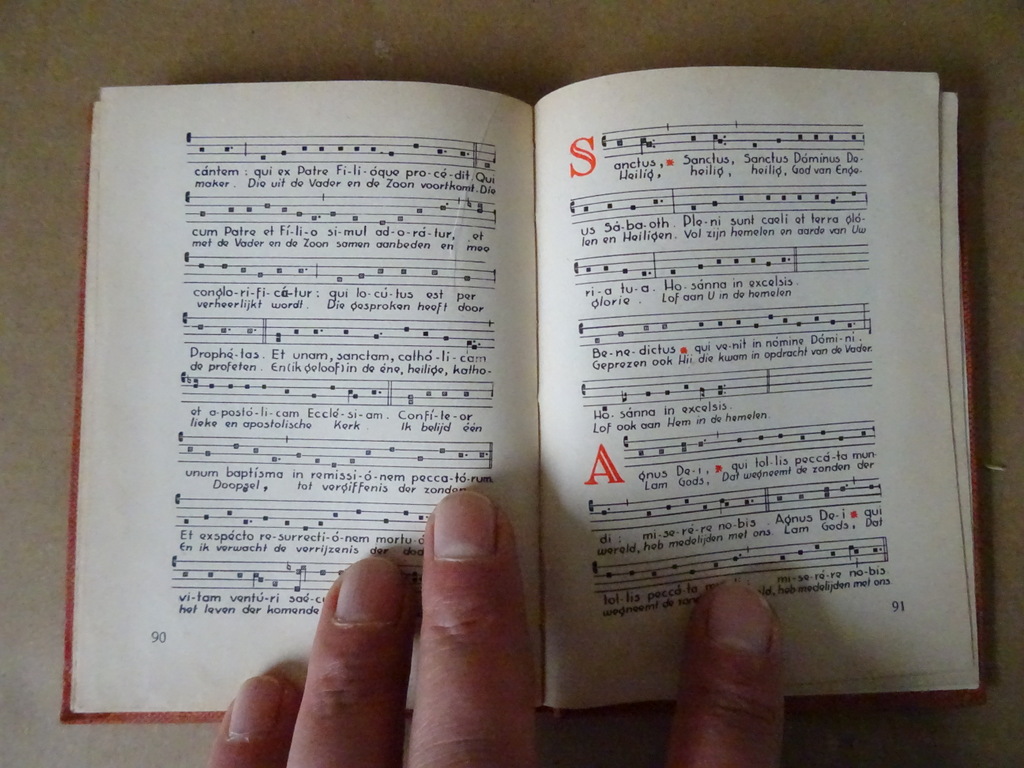 cántem : qui ex Patre Fi-li-óque pro-cé-dit. Qui
maker. Die uit de Vader en de Zoon voortkomt. Die
cum Patre et Fí-li-o si-mul ad-o-rá-tur, et
met de Vader en de Zoon samen aanbeden en mee
conglo-ri-fi-cá-tur : qui lo-cú-tus est per
verheerlijkt wordt. Die gesproken heeft door
Prophé-tas. Et unam, sanctam, cathó-li-cam
de profeten. En (ik geloof) in de éne, heilige, katho-
et a-postó-li-cam Ecclé-si-am. Confí-te-or
lieke en apostolische Kerk. Ik belijd één
unum baptísma in remissi-ó-nem pecca-tó-rum.
Doopsel, tot vergiffenis der zonden
Et exspécto re-surrecti-ó-nem mortu-
En ik verwacht de verrijzenis der
vi-tam ventú-ri saé-c
het leven der komende
90
Sanctus, * Sanctus, Sanctus Dóminus De-
Heilig, heilig, heilig, God van Enge-
us Sá-ba-oth. Ple-ni sunt caeli et terra gló-
len en Heiligen. Vol zijn hemelen en aarde van Uw
ri-a tu-a. Ho-sánna in excelsis.
glorie. Lof aan U in de hemelen
Be-ne-dictus * qui ve-nit in nómine Dómi-ni.
Geprezen ook Hij, die kwam in opdracht van de Vader.
Ho-sánna in excelsis.
Lof ook aan Hem in de hemelen.
Agnus De-i, * qui tol-lis peccá-ta mun-
Lam Gods, Dat wegneemt de zonden der
di : mi-se-ré-re no-bis. Agnus De-i * qui
wereld, heb medelijden met ons. Lam Gods, Dat
tol-lis peccá-ta mi-se-ré-re no-bis
wegneemt de heb medelijden met ons
91